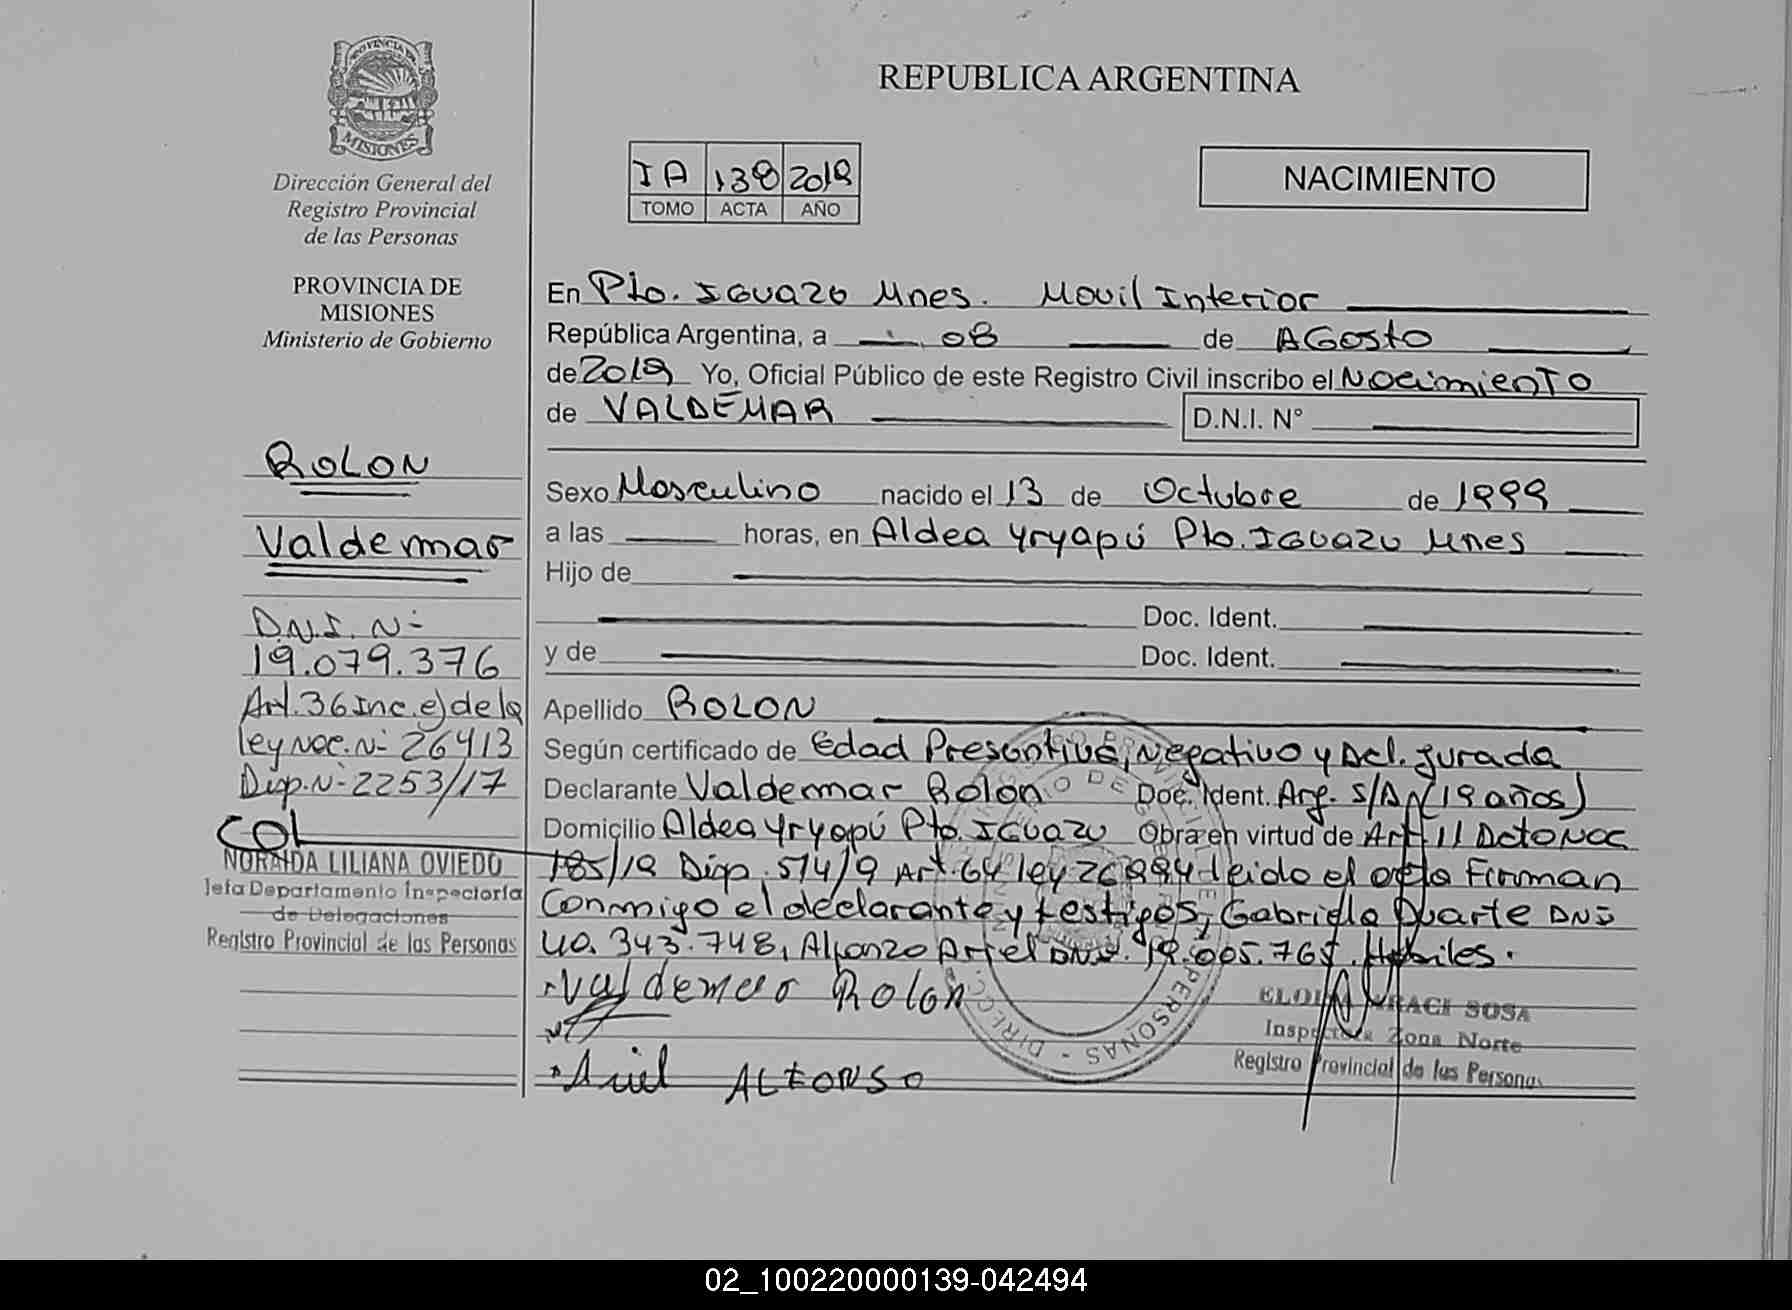 PROVINCIA DE
MISIONES
Dirección General del
Registro Provincial
de las Personas
PROVINCIA DE
MISIONES
Ministerio de Gobierno
ROLON
Valdemar
D.N.I. N-
19.079.376
Art.36 Inc.e) de la
ley Nac. N- 26413
Disp.N- 2253/17
NORAIDA LILIANA OVIEDO
Jefa Departamento Inspectoría
de Delegaciones
Registro Provincial de las Personas
REPUBLICA ARGENTINA
IA 138 2019
TOMO ACTA AÑO
NACIMIENTO
En Pto. IGUAZU Mnes. Movil Interior
República Argentina, a 08 de AGosto
de 2019 Yo, Oficial Público de este Registro Civil inscribo el Nacimiento
de VALDEMAR D.N.I. N°
Sexo Masculino nacido el 13 de Octubre de 1999
a las horas, en Aldea Yryapú Pto. IGUAZU Mnes
Hijo de
Doc. Ident.
y de Doc. Ident.
Apellido ROLON
Según certificado de Edad Presuntiva, Negativo y Dcl. Jurada
Declarante Valdemar Rolon Doc. Ident. Arg. S/A (19 años)
Domicilio Aldea Yryapú Pto. IGUAZU Obra en virtud de Art. 11 Dcto Nac
185/19 Disp. 514/9 Art. 64 ley 26994 leido el acta Firman
Conmigo el declarante y testigos, Gabriela Duarte DNI
40.343.748, Alfonzo Ariel DNI. 19.005.765. Habiles.
Valdemar Rolon
Ariel ALFONSO
Inspectora Zona Norte
Registro Provincial de las Personas
02_100220000139-042494